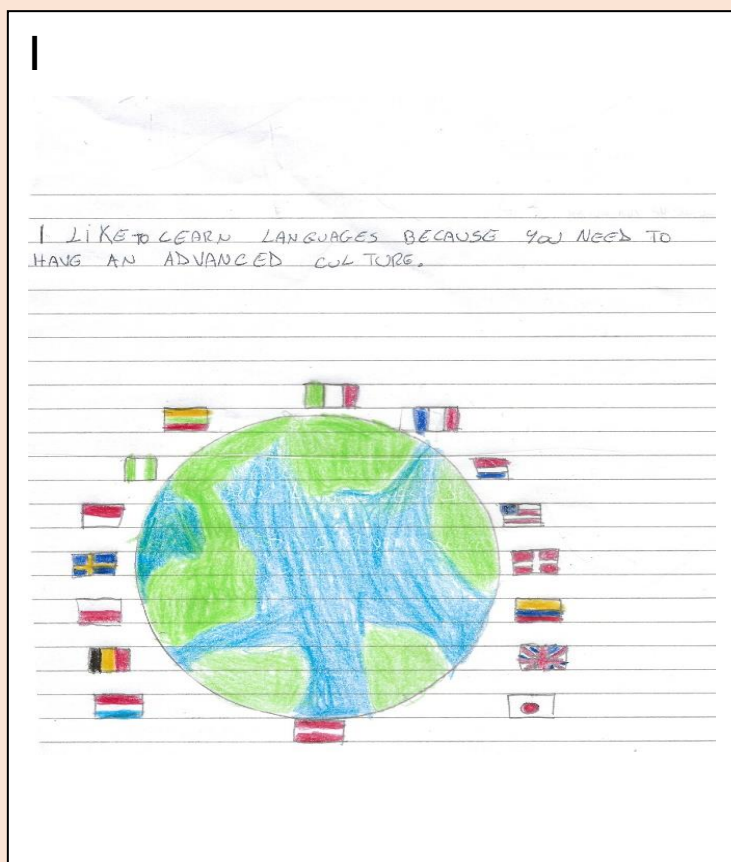 I
I LIKE TO LEARN LANGUAGES BECAUSE YOU NEED TO
HAVE AN ADVANCED CULTURE.